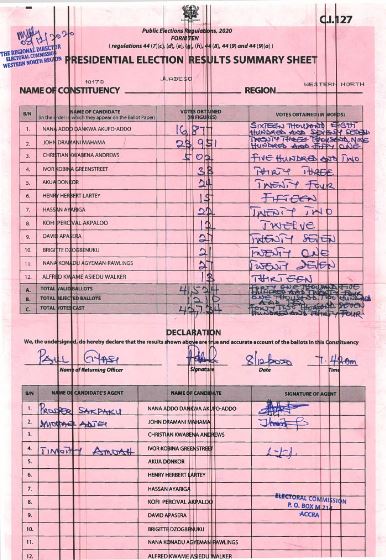 C.I.127
Public Elections Regulations, 2020
FORM TEN
(regulations 44 (7)(c), (d), (e), (g), (h), 44 (8), 44 (9) and 44 (9)(a))
THE REGIONAL DIRECTOR
ELECTORAL COMMISSION
WESTERN NORTH REGION
PRESIDENTIAL ELECTION RESULTS SUMMARY SHEET
NAME OF CONSTITUENCY JUABESO REGION WESTERN NORTH
S/N NAME OF CANDIDATE (in the order in which they appear on the Ballot Paper) VOTES OBTAINED (IN FIGURES) VOTES OBTAINED (IN WORDS)
1. NANA ADDO DANKWA AKUFO-ADDO 16,877 SIXTEEN THOUSAND EIGHT HUNDRED AND SEVENTY SEVEN
2. JOHN DRAMANI MAHAMA 23,951 TWENTY THREE THOUSAND NINE HUNDRED AND FIFTY ONE
3. CHRISTIAN KWABENA ANDREWS 502 FIVE HUNDRED AND TWO
4. IVOR KOBINA GREENSTREET 33 THIRTY THREE
5. AKUA DONKOR 24 TWENTY FOUR
6. HENRY HERBERT LARTEY 15 FIFTEEN
7. HASSAN AYARIGA 22 TWENTY TWO
8. KOFI PERCIVAL AKPALOO 12 TWELVE
9. DAVID APASERA 27 TWENTY SEVEN
10. BRIGITTE DZOGBENUKU 21 TWENTY ONE
11. NANA KONADU AGYEMAN-RAWLINGS 27 TWENTY SEVEN
12. ALFRED KWAME ASIEDU WALKER 13 THIRTEEN
A. TOTAL VALID BALLOTS 41,524
B. TOTAL REJECTED BALLOTS 1,210
C. TOTAL VOTES CAST 42,734
DECLARATION
We, the undersigned, do hereby declare that the results shown above are true and accurate account of the ballots in this Constituency
PAUL GYASI 8/12/2020 7:49am
Name of Returning Officer Signature Date Time
S/N NAME OF CANDIDATE'S AGENT NAME OF CANDIDATE SIGNATURE OF AGENT
1. PROSPER SAKPAKU NANA ADDO DANKWA AKUFO-ADDO
2. MICHAEL ADJEI JOHN DRAMANI MAHAMA
3. CHRISTIAN KWABENA ANDREWS
4. TIMOTHY IVOR KOBINA GREENSTREET
5. AKUA DONKOR
6. HENRY HERBERT LARTEY
7. HASSAN AYARIGA
8. KOFI PERCIVAL AKPALOO
9. DAVID APASERA
10. BRIGITTE DZOGBENUKU
11. NANA KONADU AGYEMAN-RAWLINGS
12. ALFRED KWAME ASIEDU WALKER
ELECTORAL COMMISSION
P. O. BOX M 214
ACCRA